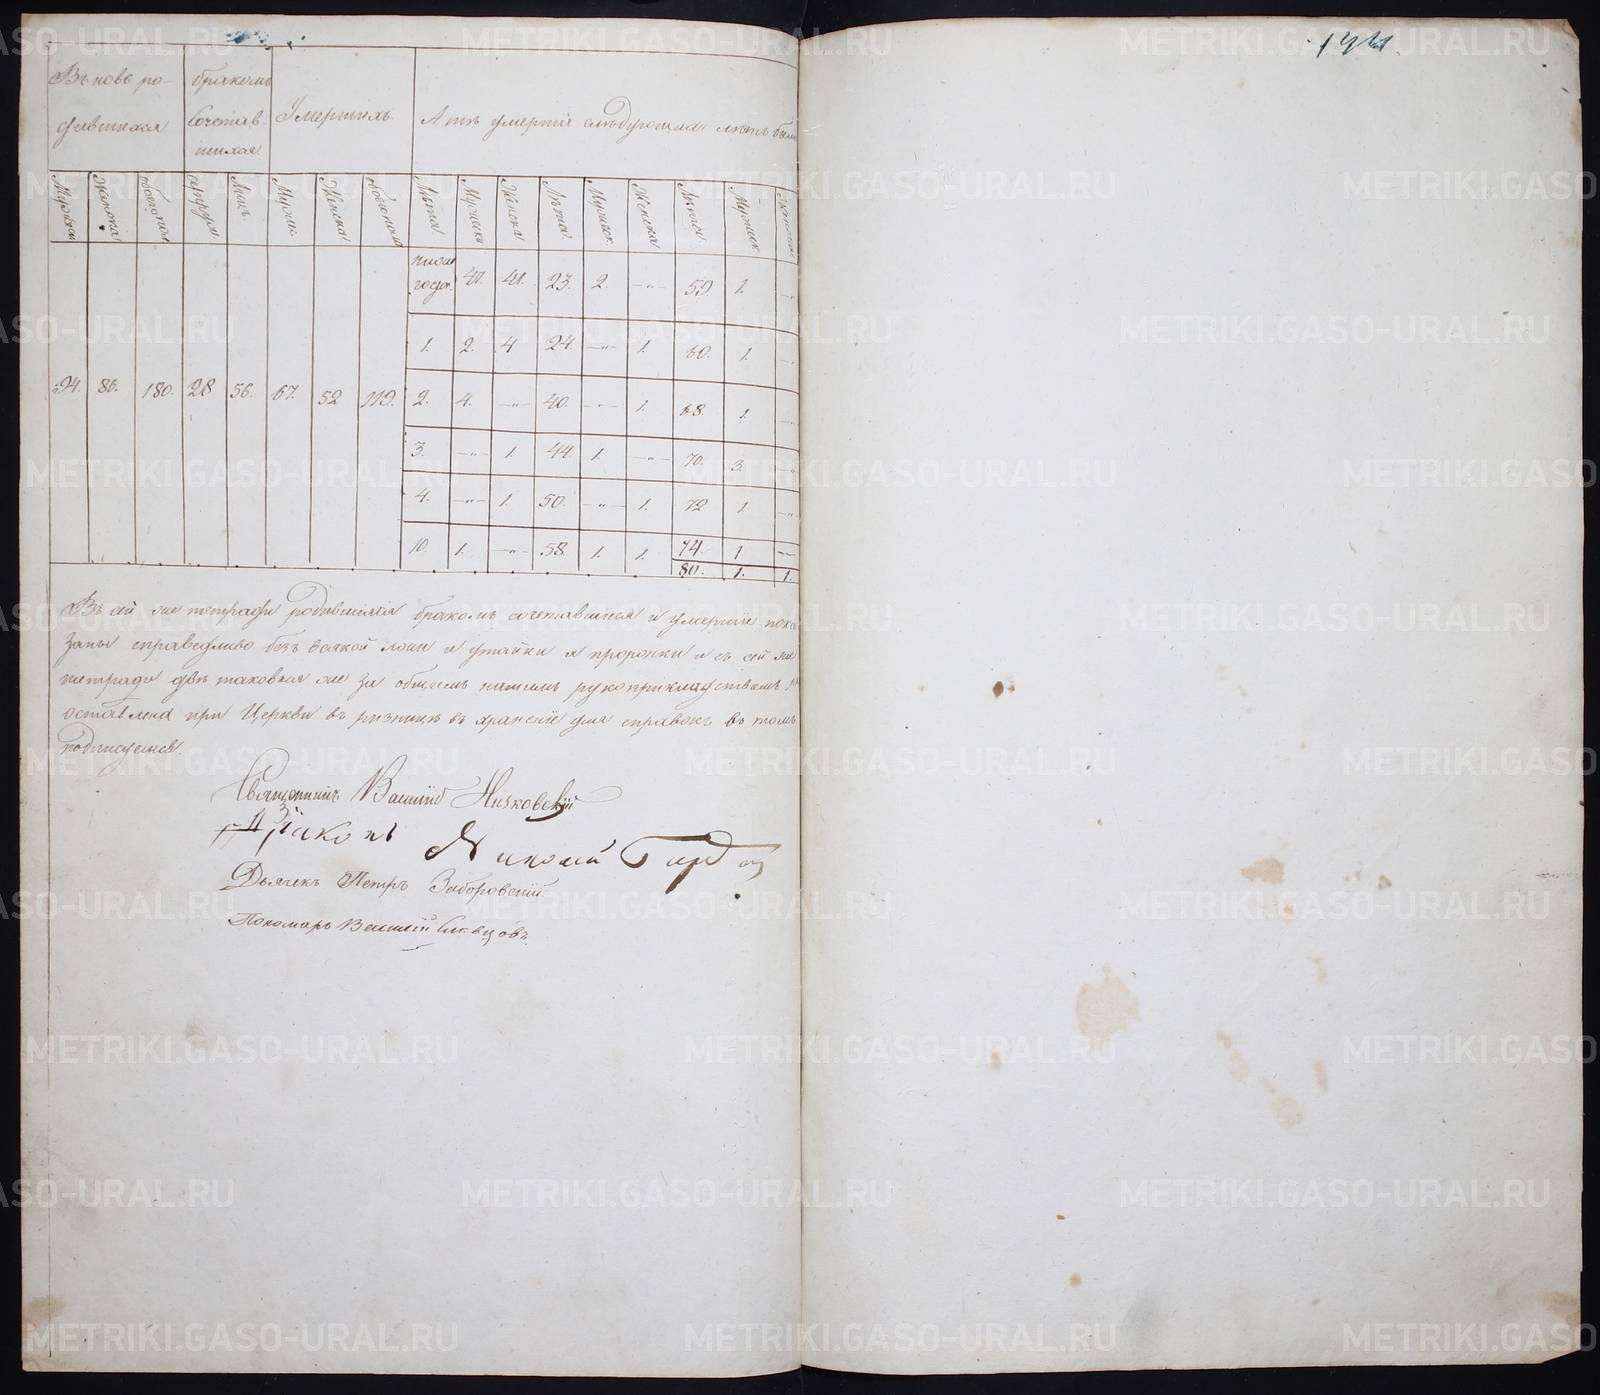 144
Въ новъ ро-
дившихся
бракомъ
Сочетав-
шихся
Умершихъ
А тѣ умершіе слѣдующихъ лѣтъ были
Мужска
Женска
обоего пола
супруж.
Лицъ
Мужск.
Женска
обоего пола
Лѣта
Мужска
Женска
Лѣта
Мужеск.
Женска
Лѣта
Мужеск.
94. 86. 180. 28 56. 67. 52 119.
ниже года. 41. 41. 23. 2. —"— 59. 1. —"—
1. 2. 4 24. —"— 1. 60. 1. —"—
2. 4. —"— 40. —"— 1. 68. 1. —"—
3. —"— 1. 44. 1. —"— 70. 3. —"—
4. —"— 1. 50. —"— 1. 72 1 —"—
10. 1. —"— 58. 1. 1. 74. 1 —"—
80. 1. 1.
Въ сей же тетради родившіяся бракомъ сочетавшіеся и умершіе пока
заны справедливо безъ всякой лжи и утайки и проронки и съ сей же
тетради двѣ таковыя же за общимъ нашимъ рукоприкладствомъ
оставлена при Церкви въ ризницѣ въ храненіе для справокъ въ томъ
подписуемся.
Священникъ Василій Низковскій
Діаконъ
Дьячекъ Петръ Заборовскій
Пономарь Василій